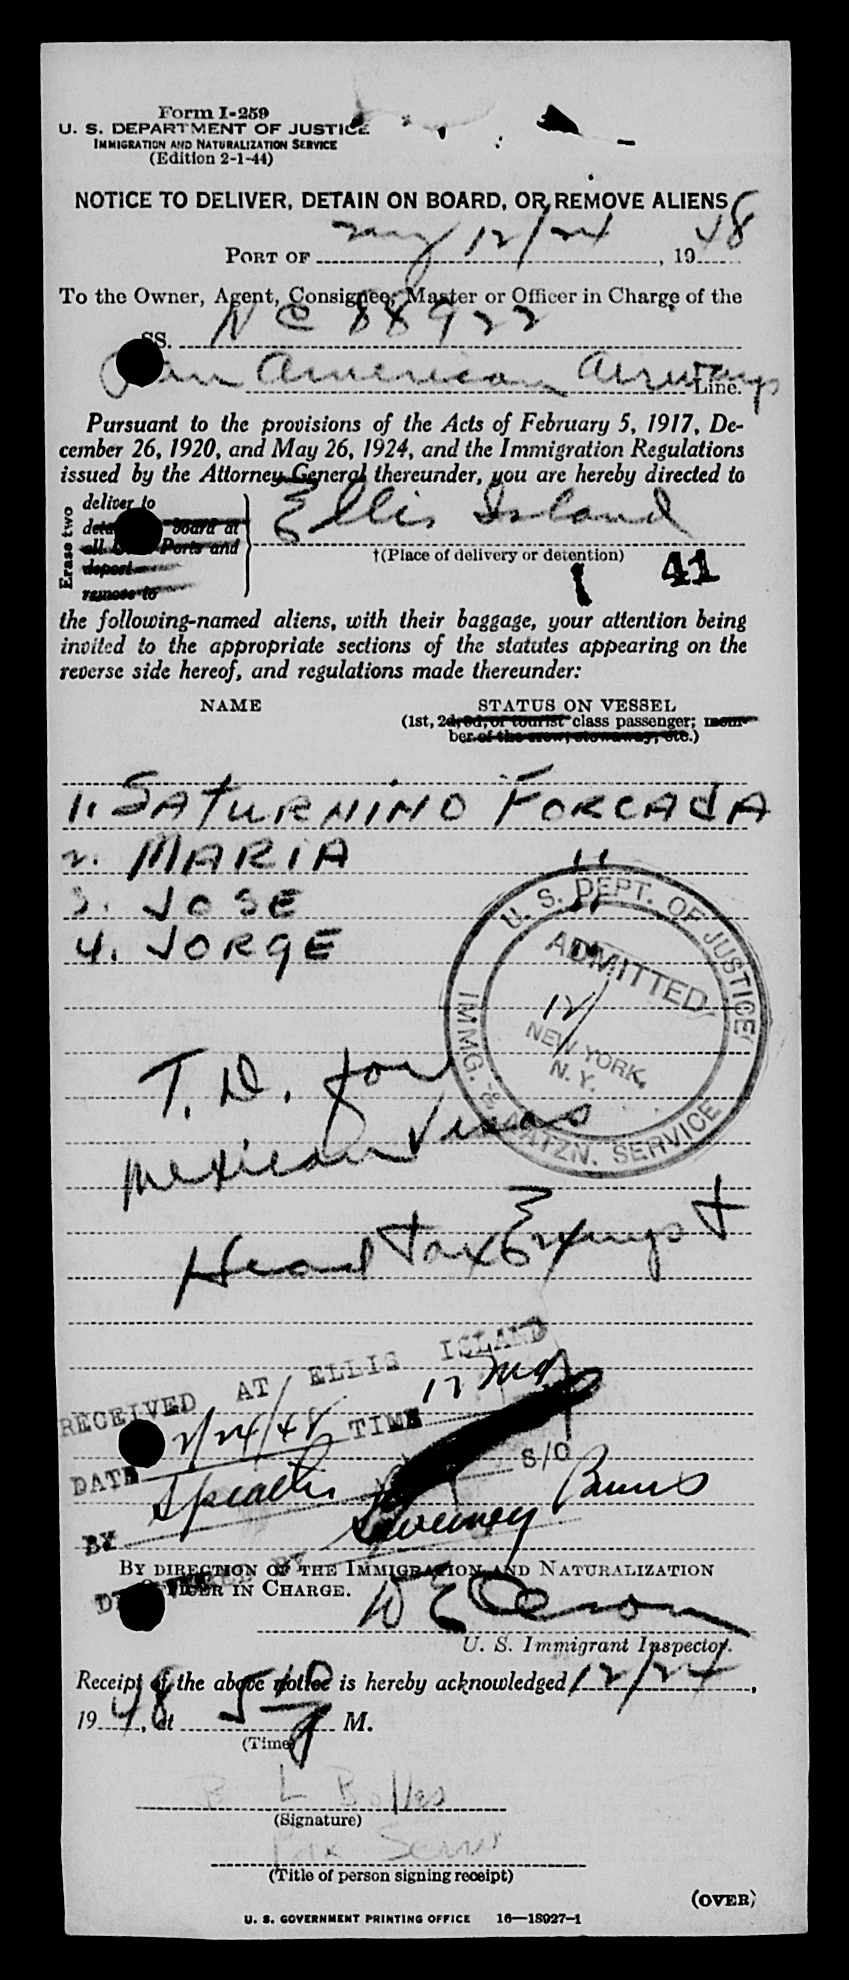 Form I-259
U. S. DEPARTMENT OF JUSTICE
IMMIGRATION AND NATURALIZATION SERVICE
(Edition 2-1-44)
NOTICE TO DELIVER, DETAIN ON BOARD, OR REMOVE ALIENS
PORT OF 12/24, 1948
To the Owner, Agent, Consignee, Master or Officer in Charge of the
SS. NC 88922
Pan American Airways Line.
Pursuant to the provisions of the Acts of February 5, 1917, De-
cember 26, 1920, and May 26, 1924, and the Immigration Regulations
issued by the Attorney General thereunder, you are hereby directed to
Erase two
deliver to
board at
all Ports and
deport
remove to
Ellis Island
†(Place of delivery or detention)
41
the following-named aliens, with their baggage, your attention being
invited to the appropriate sections of the statutes appearing on the
reverse side hereof, and regulations made thereunder:
NAME STATUS ON VESSEL
(1st, 2d, 3d, or tourist class passenger; mem-
ber of the crew, stowaway, etc.)
1. SATURNINO FORCADA
2. MARIA "
3. JOSE "
4. JORGE "
U. S. DEPT. OF JUSTICE
ADMITTED
12/
NEW YORK,
N. Y.
IMMG. & NATZN. SERVICE
T. D. for
Mexican Visas
Head tax Exempt
RECEIVED AT ELLIS ISLAND
DATE 12/24/48 TIME 12
S/O
BY Sweeney Burns
BY DIRECTION OF THE IMMIGRATION AND NATURALIZATION
OFFICER IN CHARGE.
U. S. Immigrant Inspector.
Receipt of the above notice is hereby acknowledged 12/24,
1948, at 5 10 P M.
(Time)
B L Bolles
(Signature)
Pax Serv
(Title of person signing receipt)
(OVER)
U. S. GOVERNMENT PRINTING OFFICE 16—18927-1